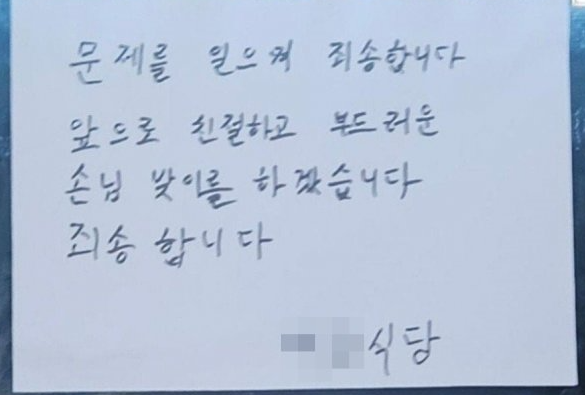 문제를 일으켜 죄송합니다
앞으로 친절하고 부드러운
손님 맞이를 하겠습니다
죄송 합니다
식당